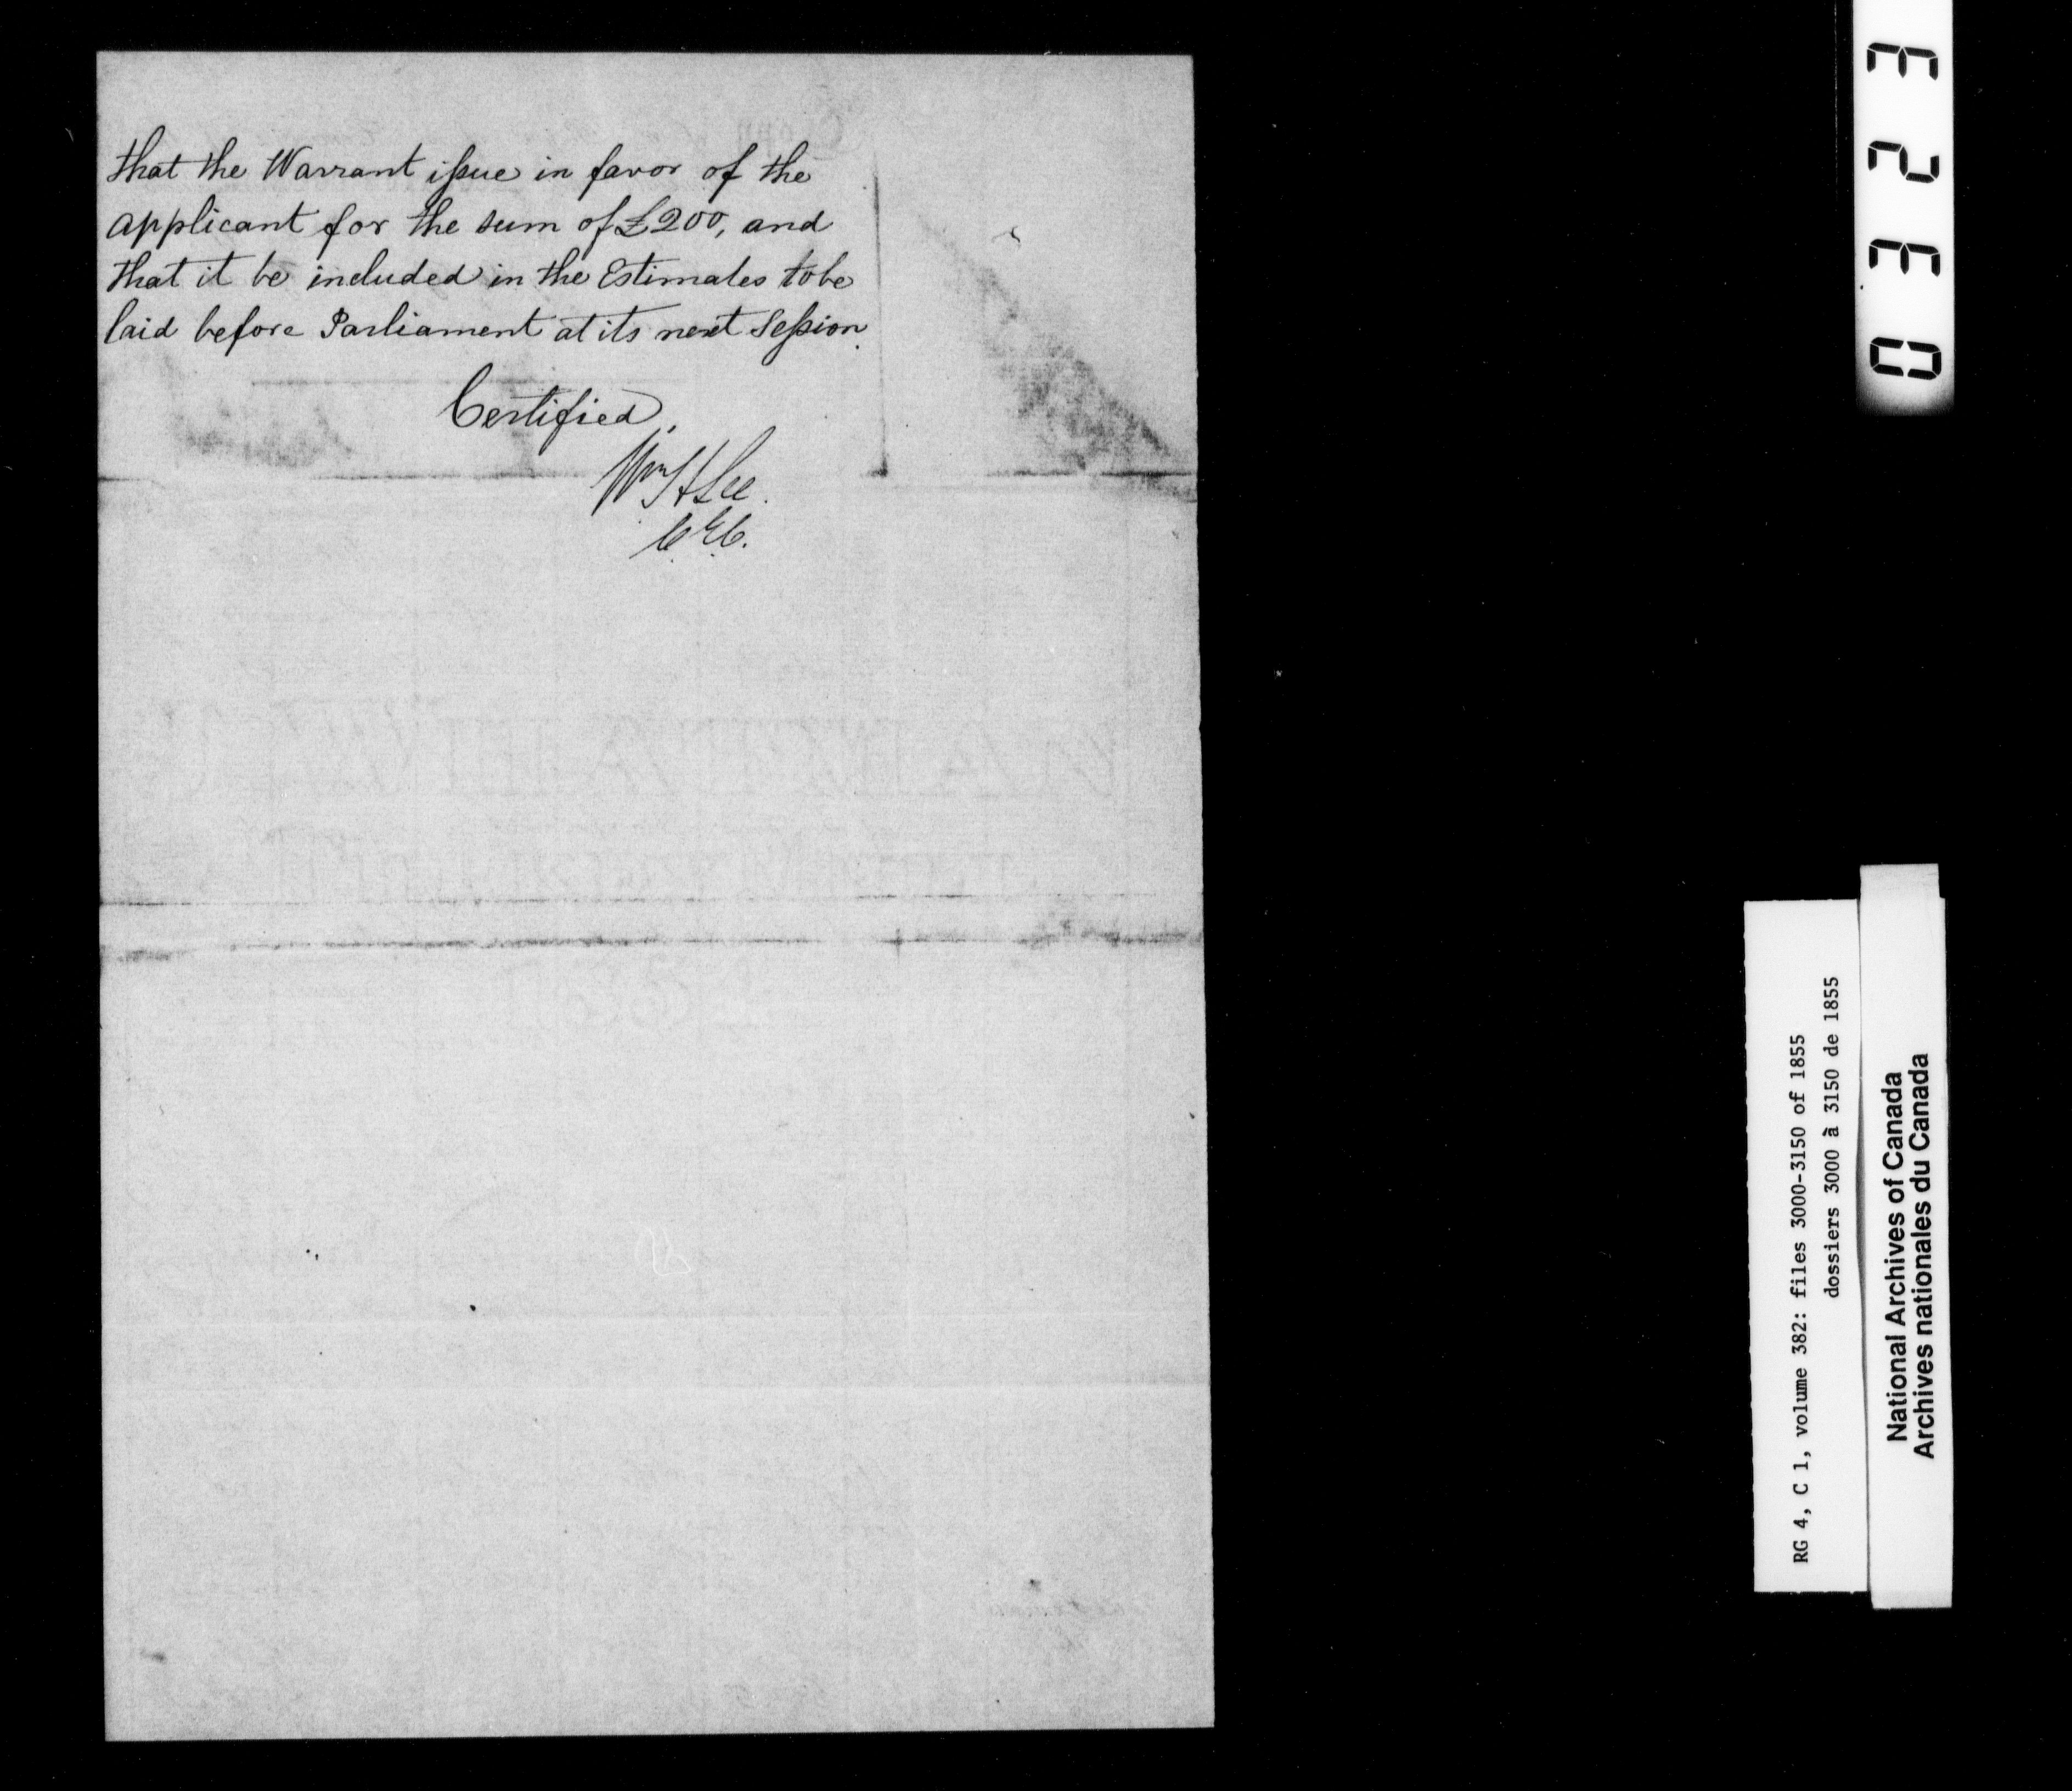 that the Warrant issue in favor of the
applicant for the sum of £200, and
that it be included in the Estimates to be
laid before Parliament at its next Session.
Certified,
Wm H Lee.
C.E.C.
0323
RG 4, C 1, volume 382: files 3000-3150 of 1855
dossiers 3000 à 3150 de 1855
National Archives of Canada
Archives nationales du Canada